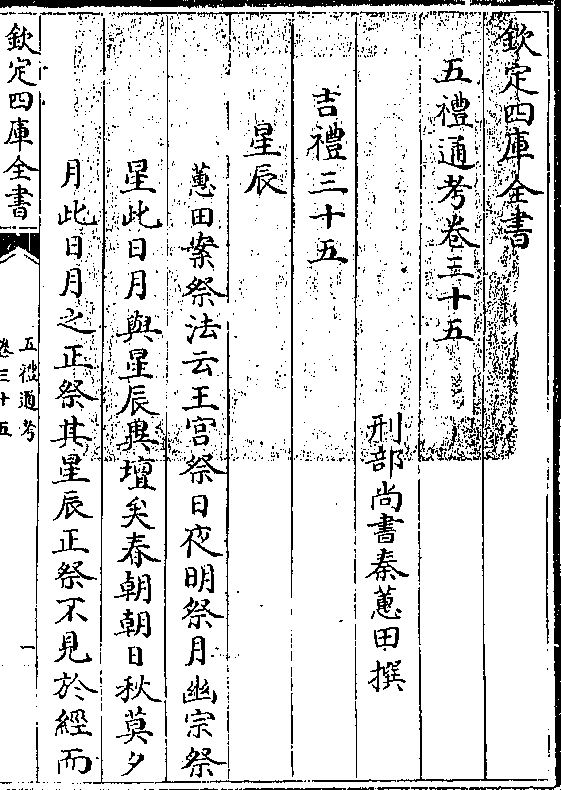 欽定四庫全書
五禮通考卷三十五
刑部尚書秦蕙田撰
吉禮三十五
星辰
蕙田案祭法云王宫祭日夜明祭月幽宗祭
星此日月與星辰異壇矣春朝朝日秋莫夕
月此日月之正祭其星辰正祭不見於經而
欽定四庫全書
五禮通考
卷三十五
一